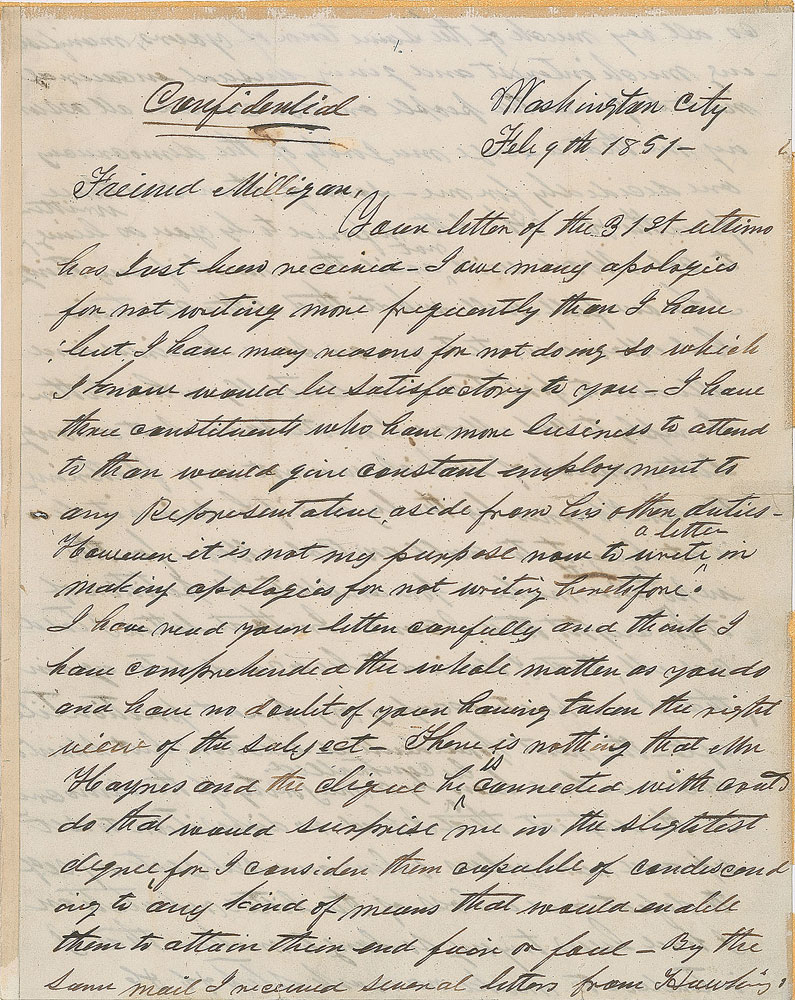 1.
Confidential
Washington City
Feb 9th 1851-
Freind Milligan,
Your letter of the 31st ultimo
has Just been received - I owe many apologies
for not writing more frequently than I have
but I have many reasons for not doing so which
I know would be satisfactory to you - I have
three constituents who have more business to attend
to than would give constant employment to
any Representative, aside from his other duties -
However it is not my purpose now to write a letter in
making apologies for not writing heretofore.
I have read your letter carefully and think I
have comprehended the whole matter as you do
and have no doubt of your having taken the right
view of the subject - There is nothing that Mr
Haynes and the clique he is connected with could
do that would surprise me in the slightest
degree for I consider them capable of condescend
ing to any kind of means that would enable
them to attain their end fair or foul - By the
same mail I received several letters from Hawkins